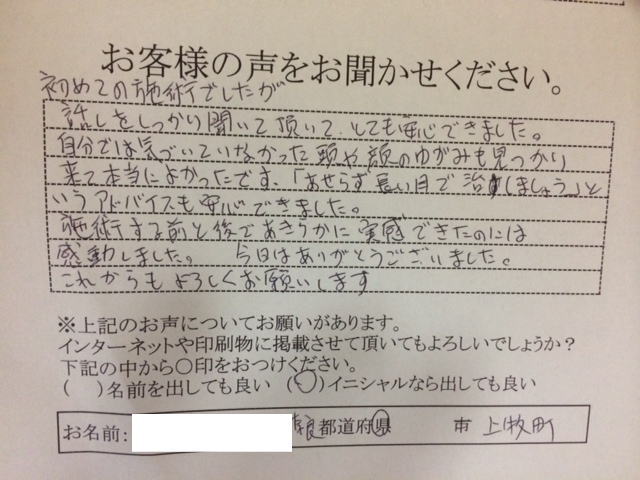 お客様の声をお聞かせください。
初めての施術でしたが
話しをしっかり聞いて頂いて、とても安心できました。
自分では気づいていなかった頭や顔のゆがみも見つかり
来て本当によかったです、「あせらず長い目で治しましょう」と
いうアドバイスも安心できました。
施術する前と後であきらかに実感できたのには
感動しました。 今日はありがとうございました。
これからもよろしくお願いします
※上記のお声についてお願いがあります。
インターネットや印刷物に掲載させて頂いてもよろしいでしょうか?
下記の中から○印をおつけください。
( )名前を出しても良い (○)イニシャルなら出しても良い
お名前: 良都道府県 市 上牧町